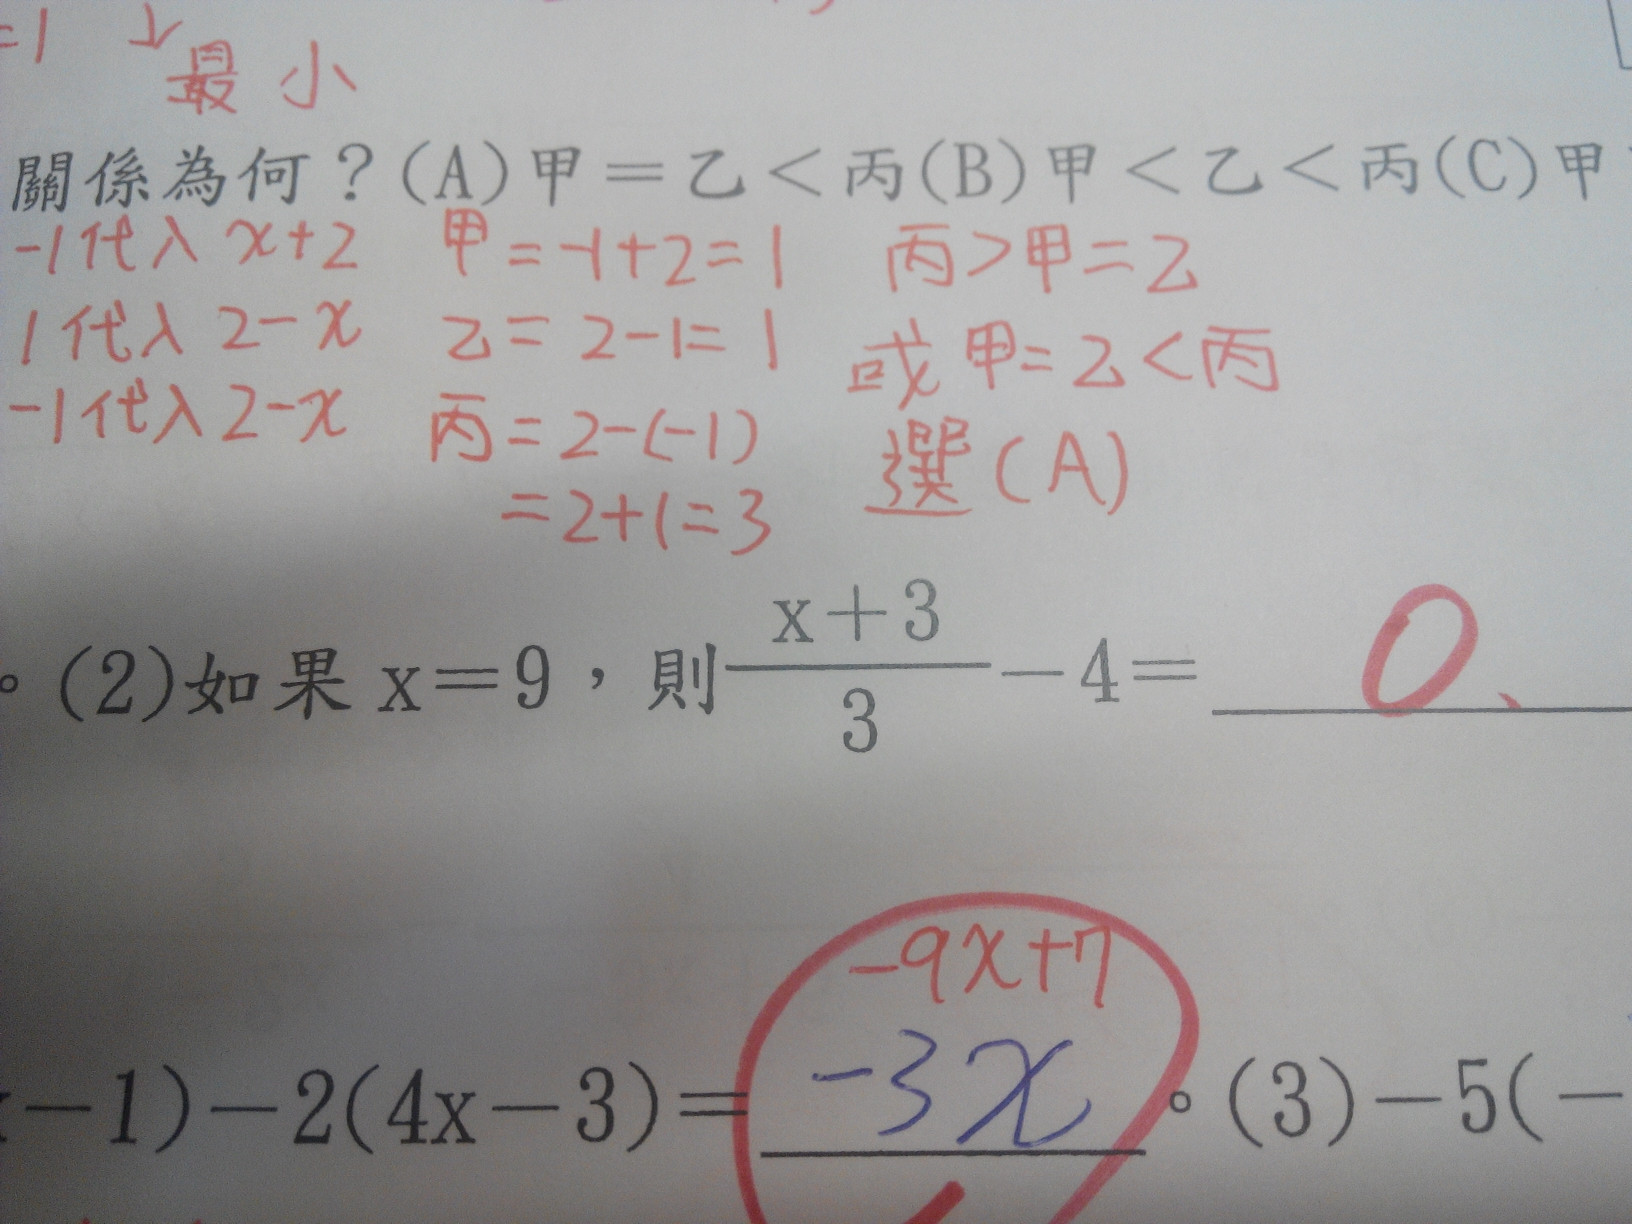 =1 ↓
最小
關係為何？(A)甲＝乙＜丙(B)甲＜乙＜丙(C)甲
-1代入 x+2 甲=-1+2=1 丙>甲=乙
1代入 2-x 乙=2-1=1 或甲=乙<丙
-1代入2-x 丙=2-(-1) 選(A)
=2+1=3
。(2)如果 x＝9，則 x＋3/3 －4＝ 0、
-9x+7
－1)－2(4x－3)＝ -3x 。(3)－5(－